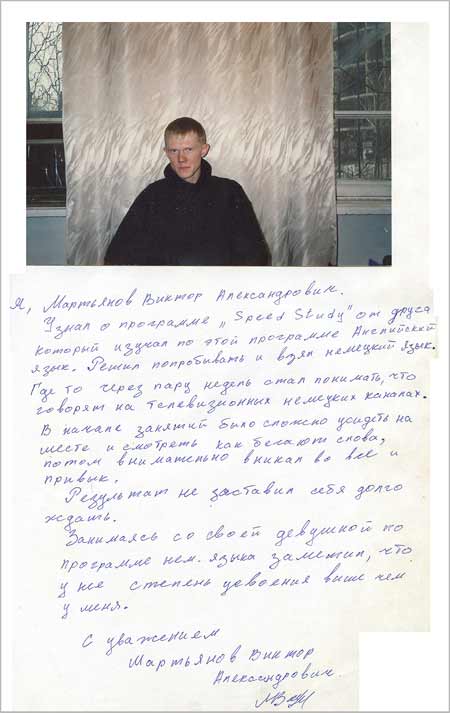 Я, Мартьянов Виктор Александрович.
Узнал о программе „Speed Study" от друга
который изучал по этой программе Английский
язык. Решил попробывать и взял немецкий язык.
Где то через пару недель стал понимать, что
говорят на телевизионных немецких каналах.
В начале занятий было сложно усидеть на
месте и смотреть как бегают слова,
потом внимательно вникал во все и
привык.
Результат не заставил себя долго
ждать.
Занимаясь со своей девушкой по
программе нем. языка заметил, что
у неё степень усвоения выше чем
у меня.
С уважением
Мартьянов Виктор
Александрович.